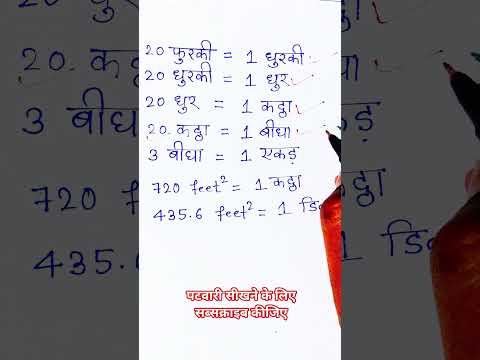 20 फुरकी = 1 धुरकी
20 धुरकी = 1 धुर
20 धुर = 1 कट्ठा
20. कट्ठा = 1 बीघा
3 बीघा = 1 एकड़
720 feet² = 1 कट्ठा
435.6 feet² = 1
पटवारी सीखने के लिए
सब्सक्राइब कीजिए